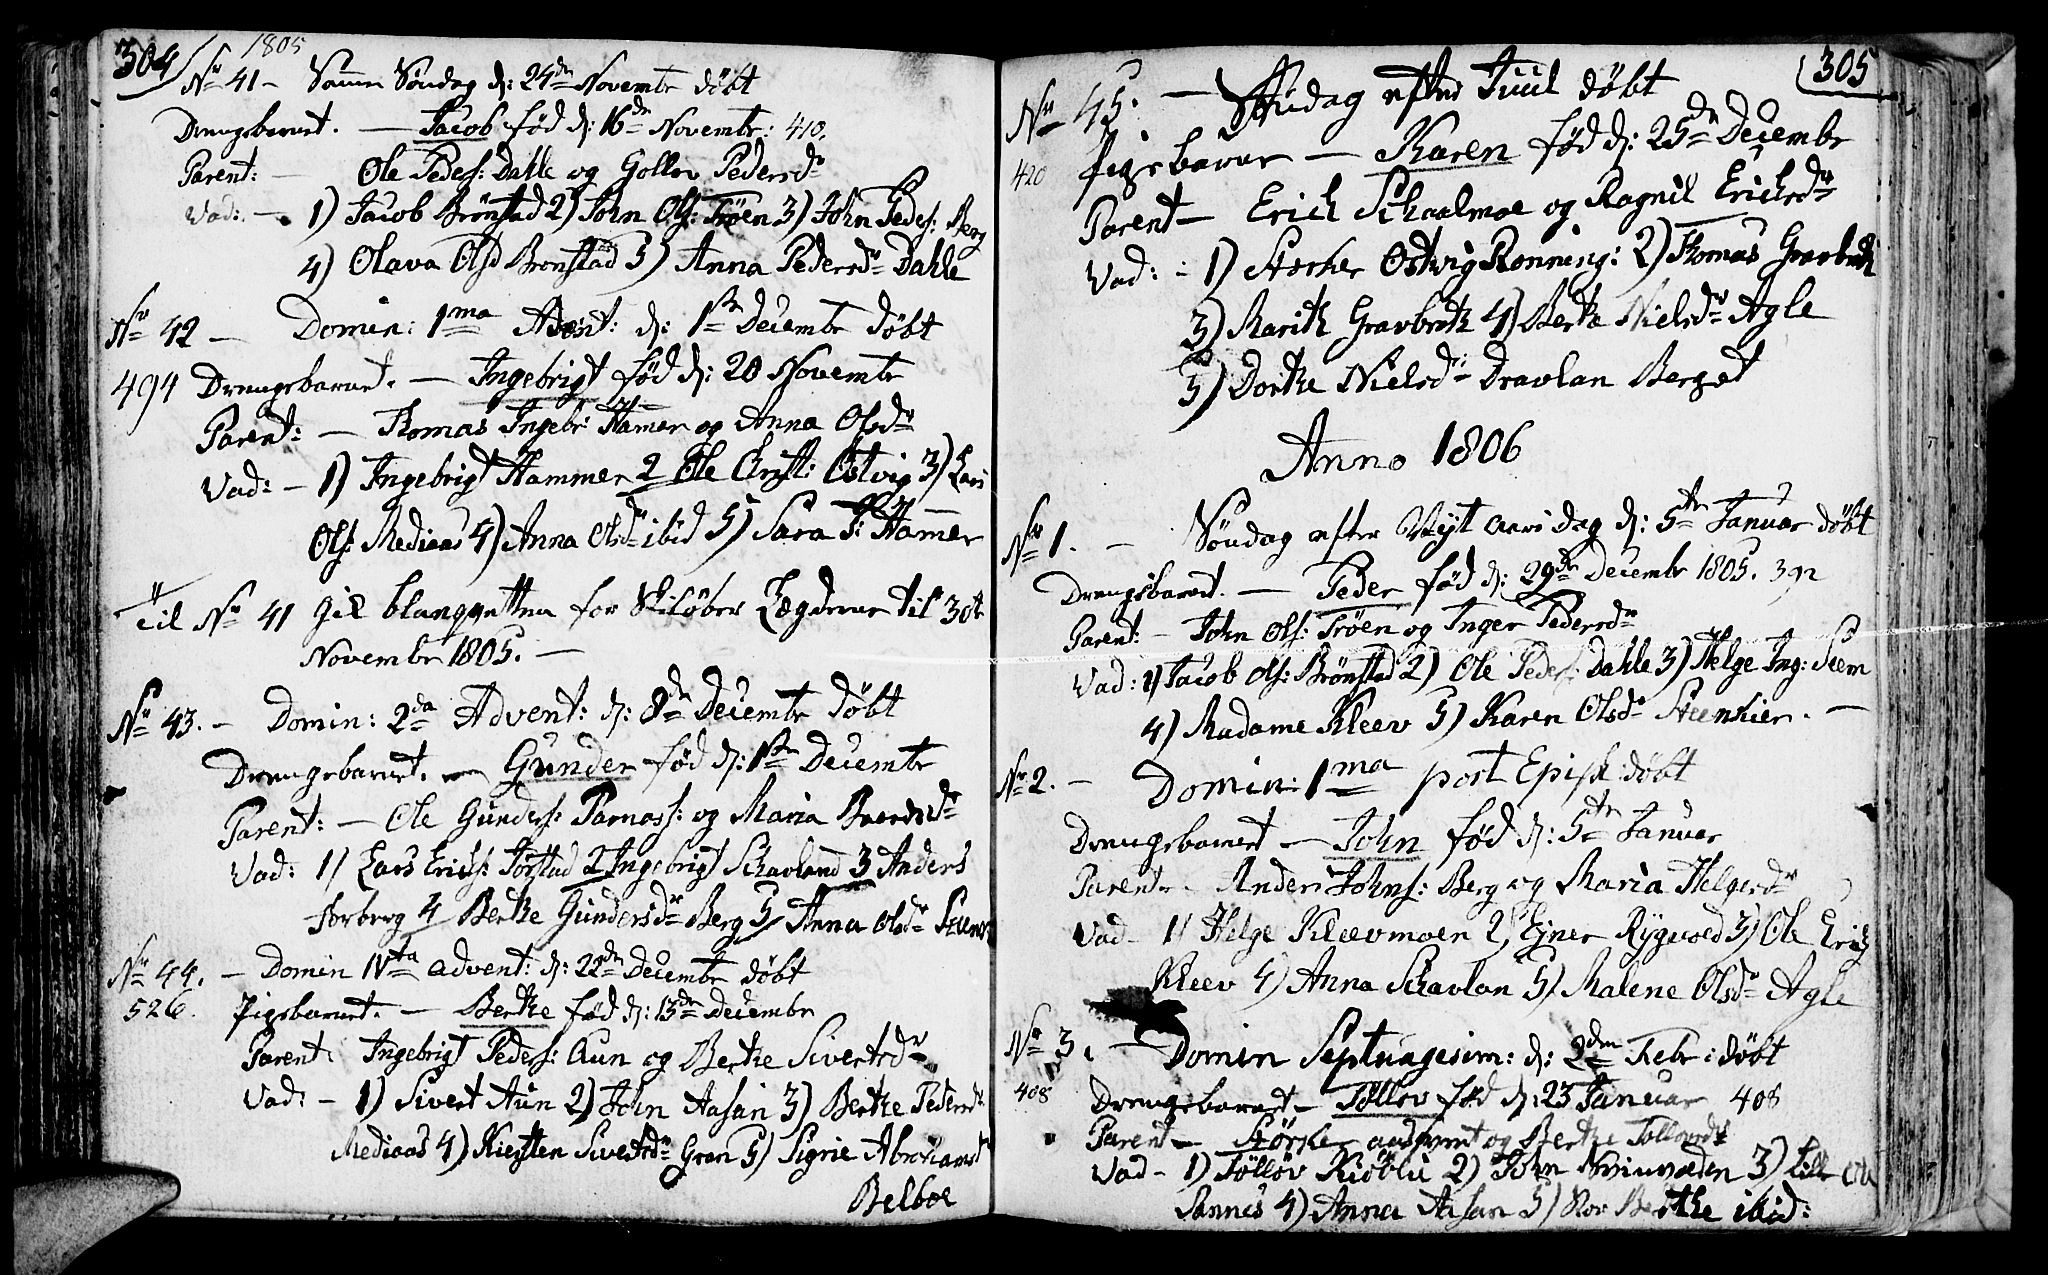 304 1805
No 41 - Samme Søndag d: 24de Novembr døbt
Drengebarnet. - Jacob fød d: 16de Novembr: 410.
Parent: - Ole Peders: Dahle og Gollov Pedersdr
Vad: - 1) Jacob Brønstad 2) John Ols: Trøen 3) John Peders: Berg
4) Olava Olsd Brønstad 5) Anna Pedersdr Dahle
No 42 - Domin: 1ma Advent: d: 1ste Decembr døbt
494 Drengebarnet. - Ingebrigt fød d: 20 Novembr
Parent: - Thomas Ingebr: Hamer og Anna Olsdr
Vad: - 1) Ingebrigt Hammer 2 Ole Christ: Østvig 3) Lars
Ols: Mediaas 4) Anna Olsdr ibid 5) Sara J: Hamer
Til No 41 gik blanqvetten for Skiløber Lægderne til 30te
Novembr 1805. -
No 43. - Domin: 2da Advent: d: 8de Decembr døbt
Drengebarnet. - Gunder fød d: 1ste Decembr
Parent: - Ole Gunders: Parnass: og Maria Baardsdr
Vad: 1) Lars Erichs: Forstad 2 Ingebrigt Schavland 3 Anders
Forberg 4 Berthe Gundersdr Berg 5 Anna Olsdr
No 44. - Domin IVta advent: d: 22de Decembr døbt
526. Pigebarnet. - Berthe fød d: 13de Decembr
Parent: Ingebrigt Peders: Aun og Berthe Sivertsdr
Vad: - 1) Sivert Aun 2) John Aasan 3) Berthe Pedersdr
Mediaas 4) Kiersten Sivertsdr Gran 5) Sigrie Abrahamsdr
Belboe
305
No 45. - Søndag efter Juul døbt
420 Pigebarnet - Karen fød d: 25de Decembr
Parent - Erich Schaalmoe og Ragnil Erichsdr
Vad: - 1) Størker Østvig Rønning: 2) Thomas Gravbroth
3) Marith Gravbroth 4) Bertha Nielsdr Agle
5) Dorthe Nielsdr Dravlan Berget
Anno 1806
No 1. - Søndag efter Nyt aars dag d: 5te Januar døbt
Drengebarnet. - Peder fød d: 29de Decembr 1805. 392
Parent: - John Ols: Trøen og Inger Pedersdr
Vad: 1) Jacob Ols: Brønstad 2) Ole Peders: Dahle 3) Helge Ing: Seem
4) Madame Kleev 5) Karen Olsdr Steenkier. -
No 2. - Domin: 1ma post Epiph: døbt
Drengebarnet - John fød d: 5te Januar
Parent - Anders Johns: Berg og Maria Helgesdr
Vad - 1) Helge Kleevmoen 2) Ejner Rygvold 3) Ole Erich
Kleev 4) Anna Schavlan 5) Malene Olsdr Agle
No 3. - Domin Septuagesim: d: 2den Febr: døbt
408 Drengebarnet - Tølløv fød d: 23 Januar 408
Parent - Størker og Berthe Tollovsdr
Vad - 1) Tølløv Kiøblie 2) John 3) Lille Ole
Sannes 4) Anna Aasan 5) Stor Berthe ibid: